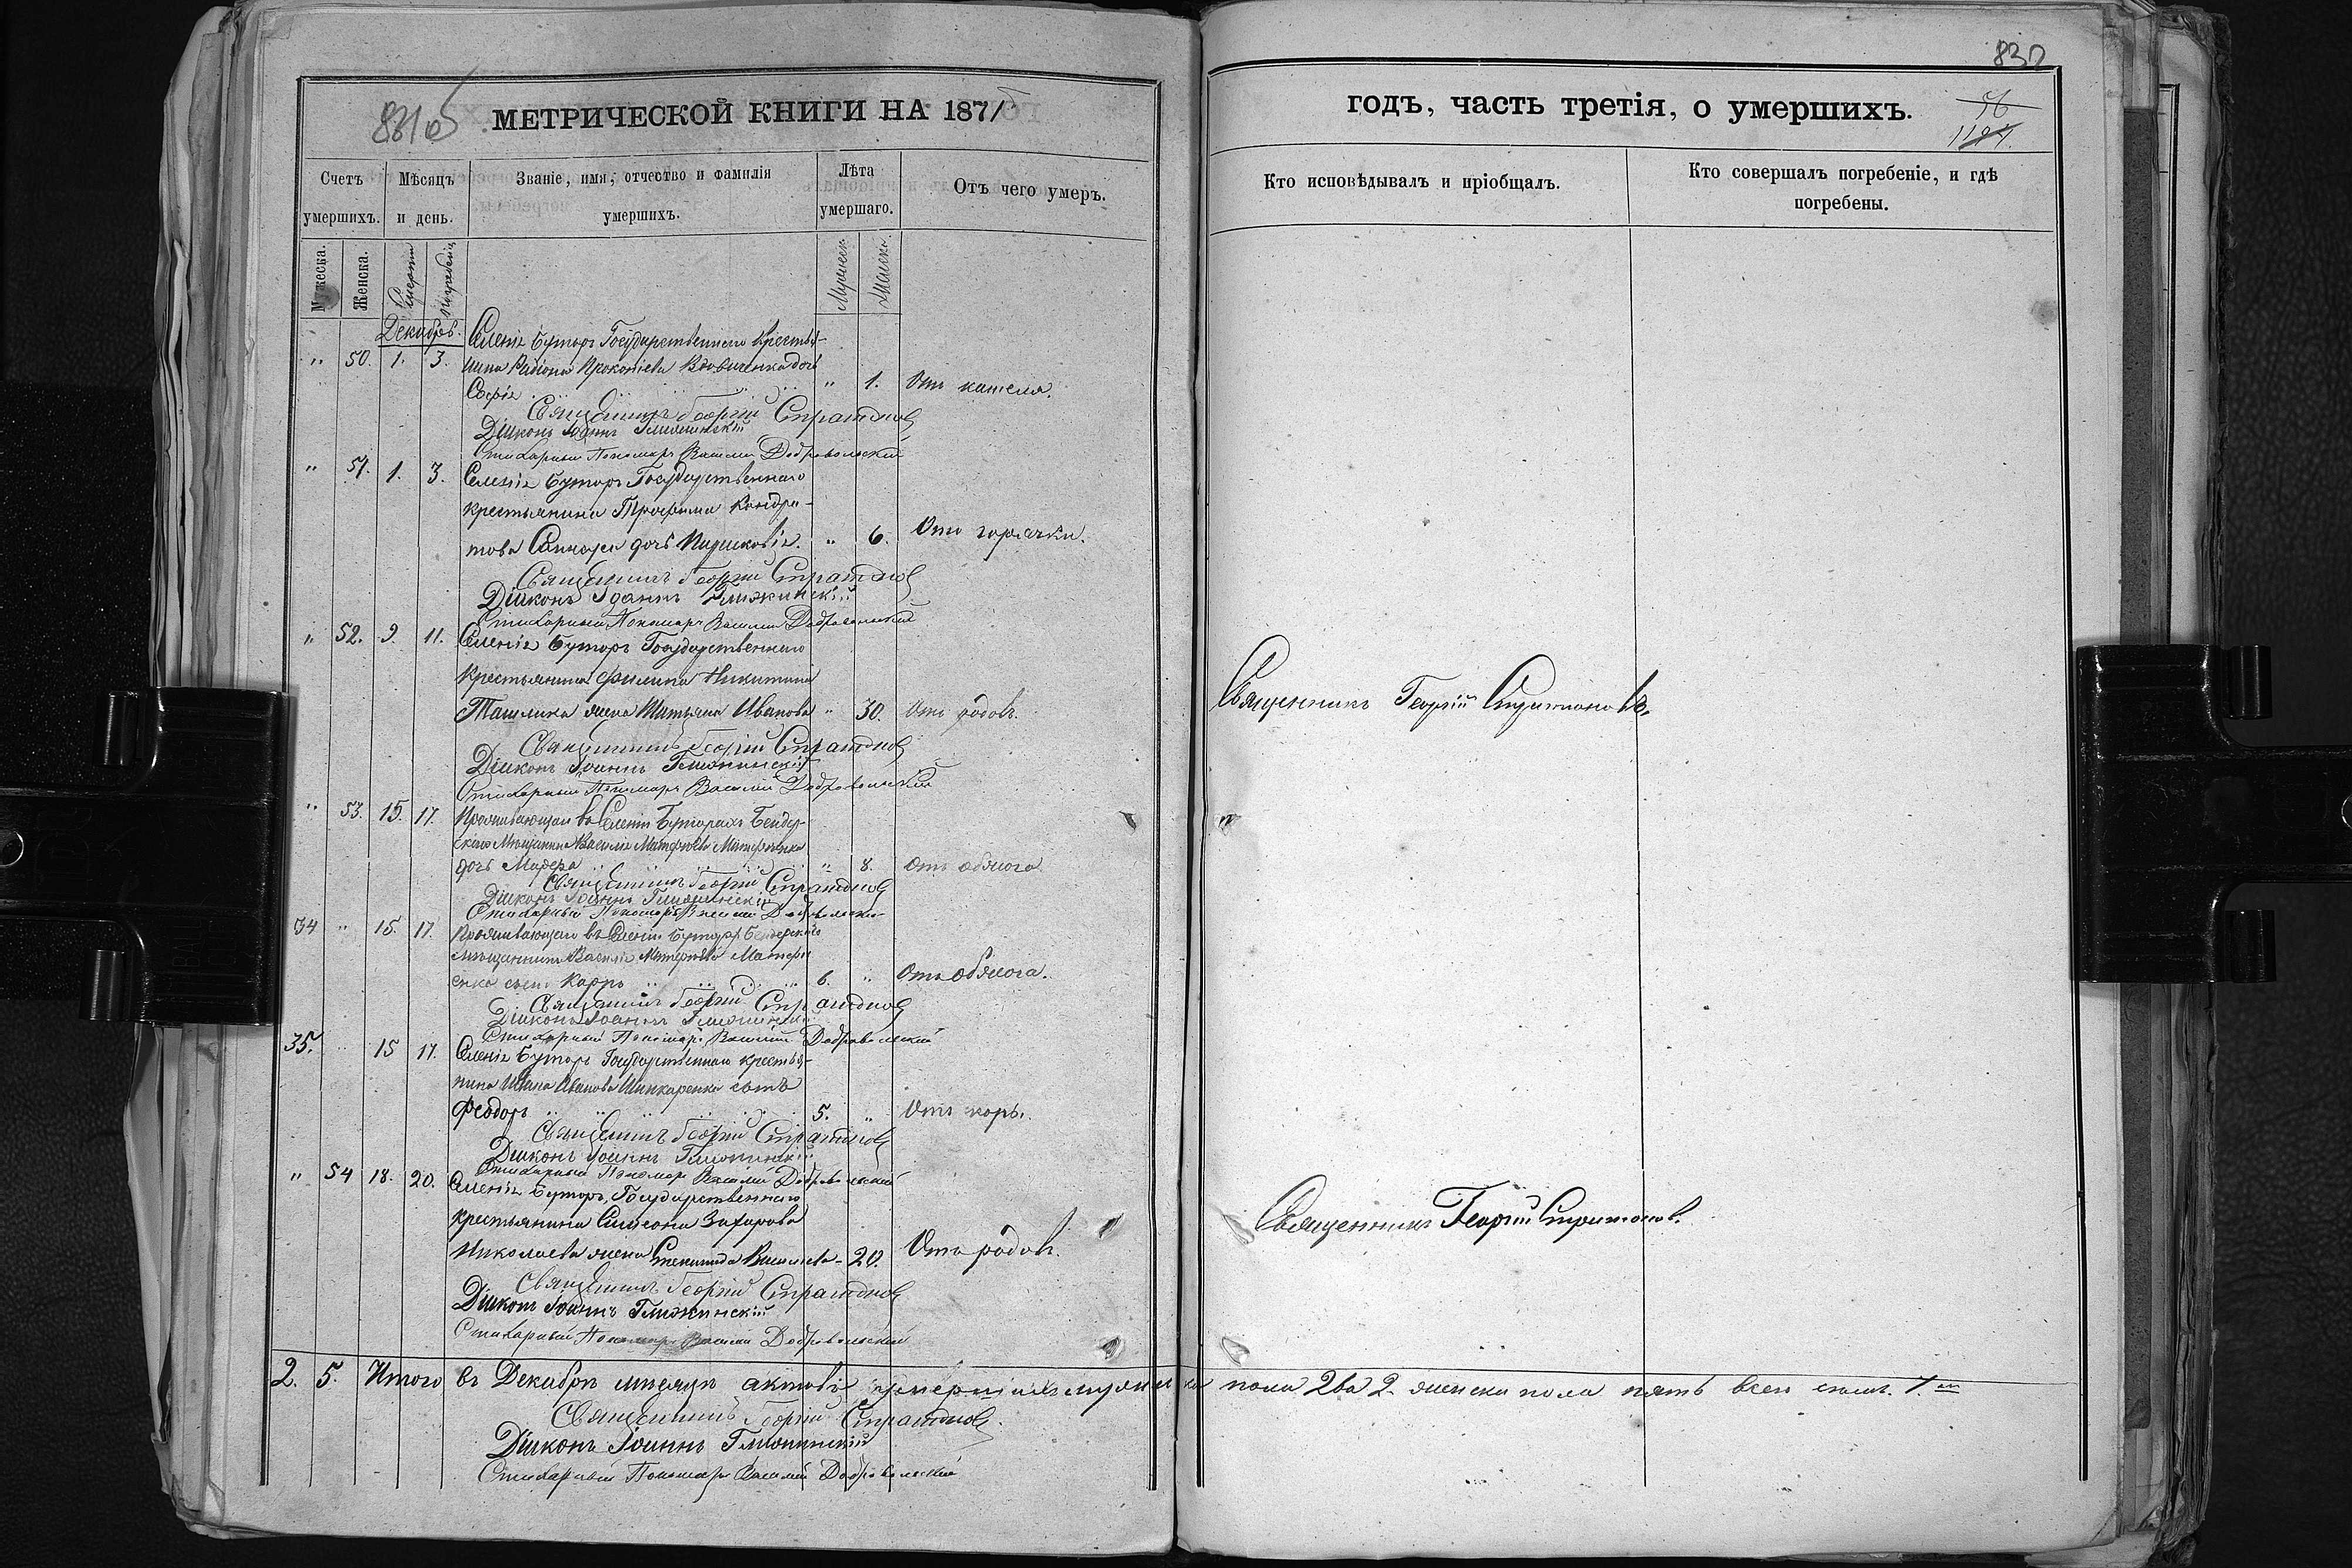 831об
МЕТРИЧЕСКОЙ КНИГИ НА 1871
Счетъ умершихъ.
Мѣсяцъ и день.
Званіе, имя, отчество и фамилія умершихъ.
Лѣта умершаго.
Отъ чего умеръ.
Мужеска.
Женска.
Смерти
погребенія
Мужеск.
Женск.
Декабрь.
" 50. 1. 3. Селенія Буторъ Государственнаго крестья-
нина Прокопіева Вдовиченка дочь
Софія " 1. Отъ кашеля.
Священникъ Георгій Стратоновъ
Діаконъ Іоаннъ Глижинскій
Стихарный Пономарь Василій Добровольскій
" 51. 1. 3. Селенія Буторъ Государственнаго
крестьянина Трофима Кондра-
това дочь Параскевія. " 6. Отъ горячки.
Священникъ Георгій Стратоновъ
Діаконъ Іоаннъ Глижинскій
Стихарный Пономарь Василій Добровольскій
" 52. 9. 11. Селенія Буторъ Государственнаго
крестьянина Филипа Никитина
Ташлыка жена Татьяна Иванова " 30. Отъ родовъ.
Священникъ Георгій Стратоновъ
Діаконъ Іоаннъ Глижинскій
Стихарный Пономарь Василій Добровольскій
" 53. 15. 17. Проживающаго въ Селеніи Буторахъ Бендер-
скаго Мещанина Василія
дочь " 8. Отъ обжога
Священникъ Георгій Стратоновъ
Діаконъ Іоаннъ Глижинскій
Стихарный Пономарь Василій Добровольскій
34 " 15. 17. Проживающаго въ Селеніи Буторахъ Бендерскаго
мещанина Василія
енка сынъ Карпъ 6. " Отъ обжога.
Священникъ Георгій Стратоновъ
Діаконъ Іоаннъ Глижинскій
Стихарный Пономарь Василій Добровольскій
35. " 15 17. Селенія Буторъ Государственнаго крестья-
нина Ивана Иванова Шинкаренка сынъ
Феодоръ 5. " Отъ кори.
Священникъ Георгій Стратоновъ
Діаконъ Іоаннъ Глижинскій
Стихарный Пономарь Василій Добровольскій
" 54 18. 20. Селенія Буторъ, Государственнаго
крестьянина Симеона Захарова
Николаева жена Васильева - 20. Отъ родовъ.
Священникъ Георгій Стратоновъ
Діаконъ Іоаннъ Глижинскій
Стихарный Пономарь Василій Добровольскій
2. 5. Итого въ Декабрѣ мѣсяцѣ умершихъ мужеска пола два 2. женска пола пять всего 7.
Священникъ Георгій Стратоновъ.
Діаконъ Іоаннъ Глижинскій
Стихарный Пономарь Василій Добровольскій
832
годъ, часть третія, о умершихъ.
Кто исповѣдывалъ и пріобщалъ.
Кто совершалъ погребеніе, и гдѣ погребены.
Священникъ Георгій Стратоновъ.
Священникъ Георгій Стратоновъ.